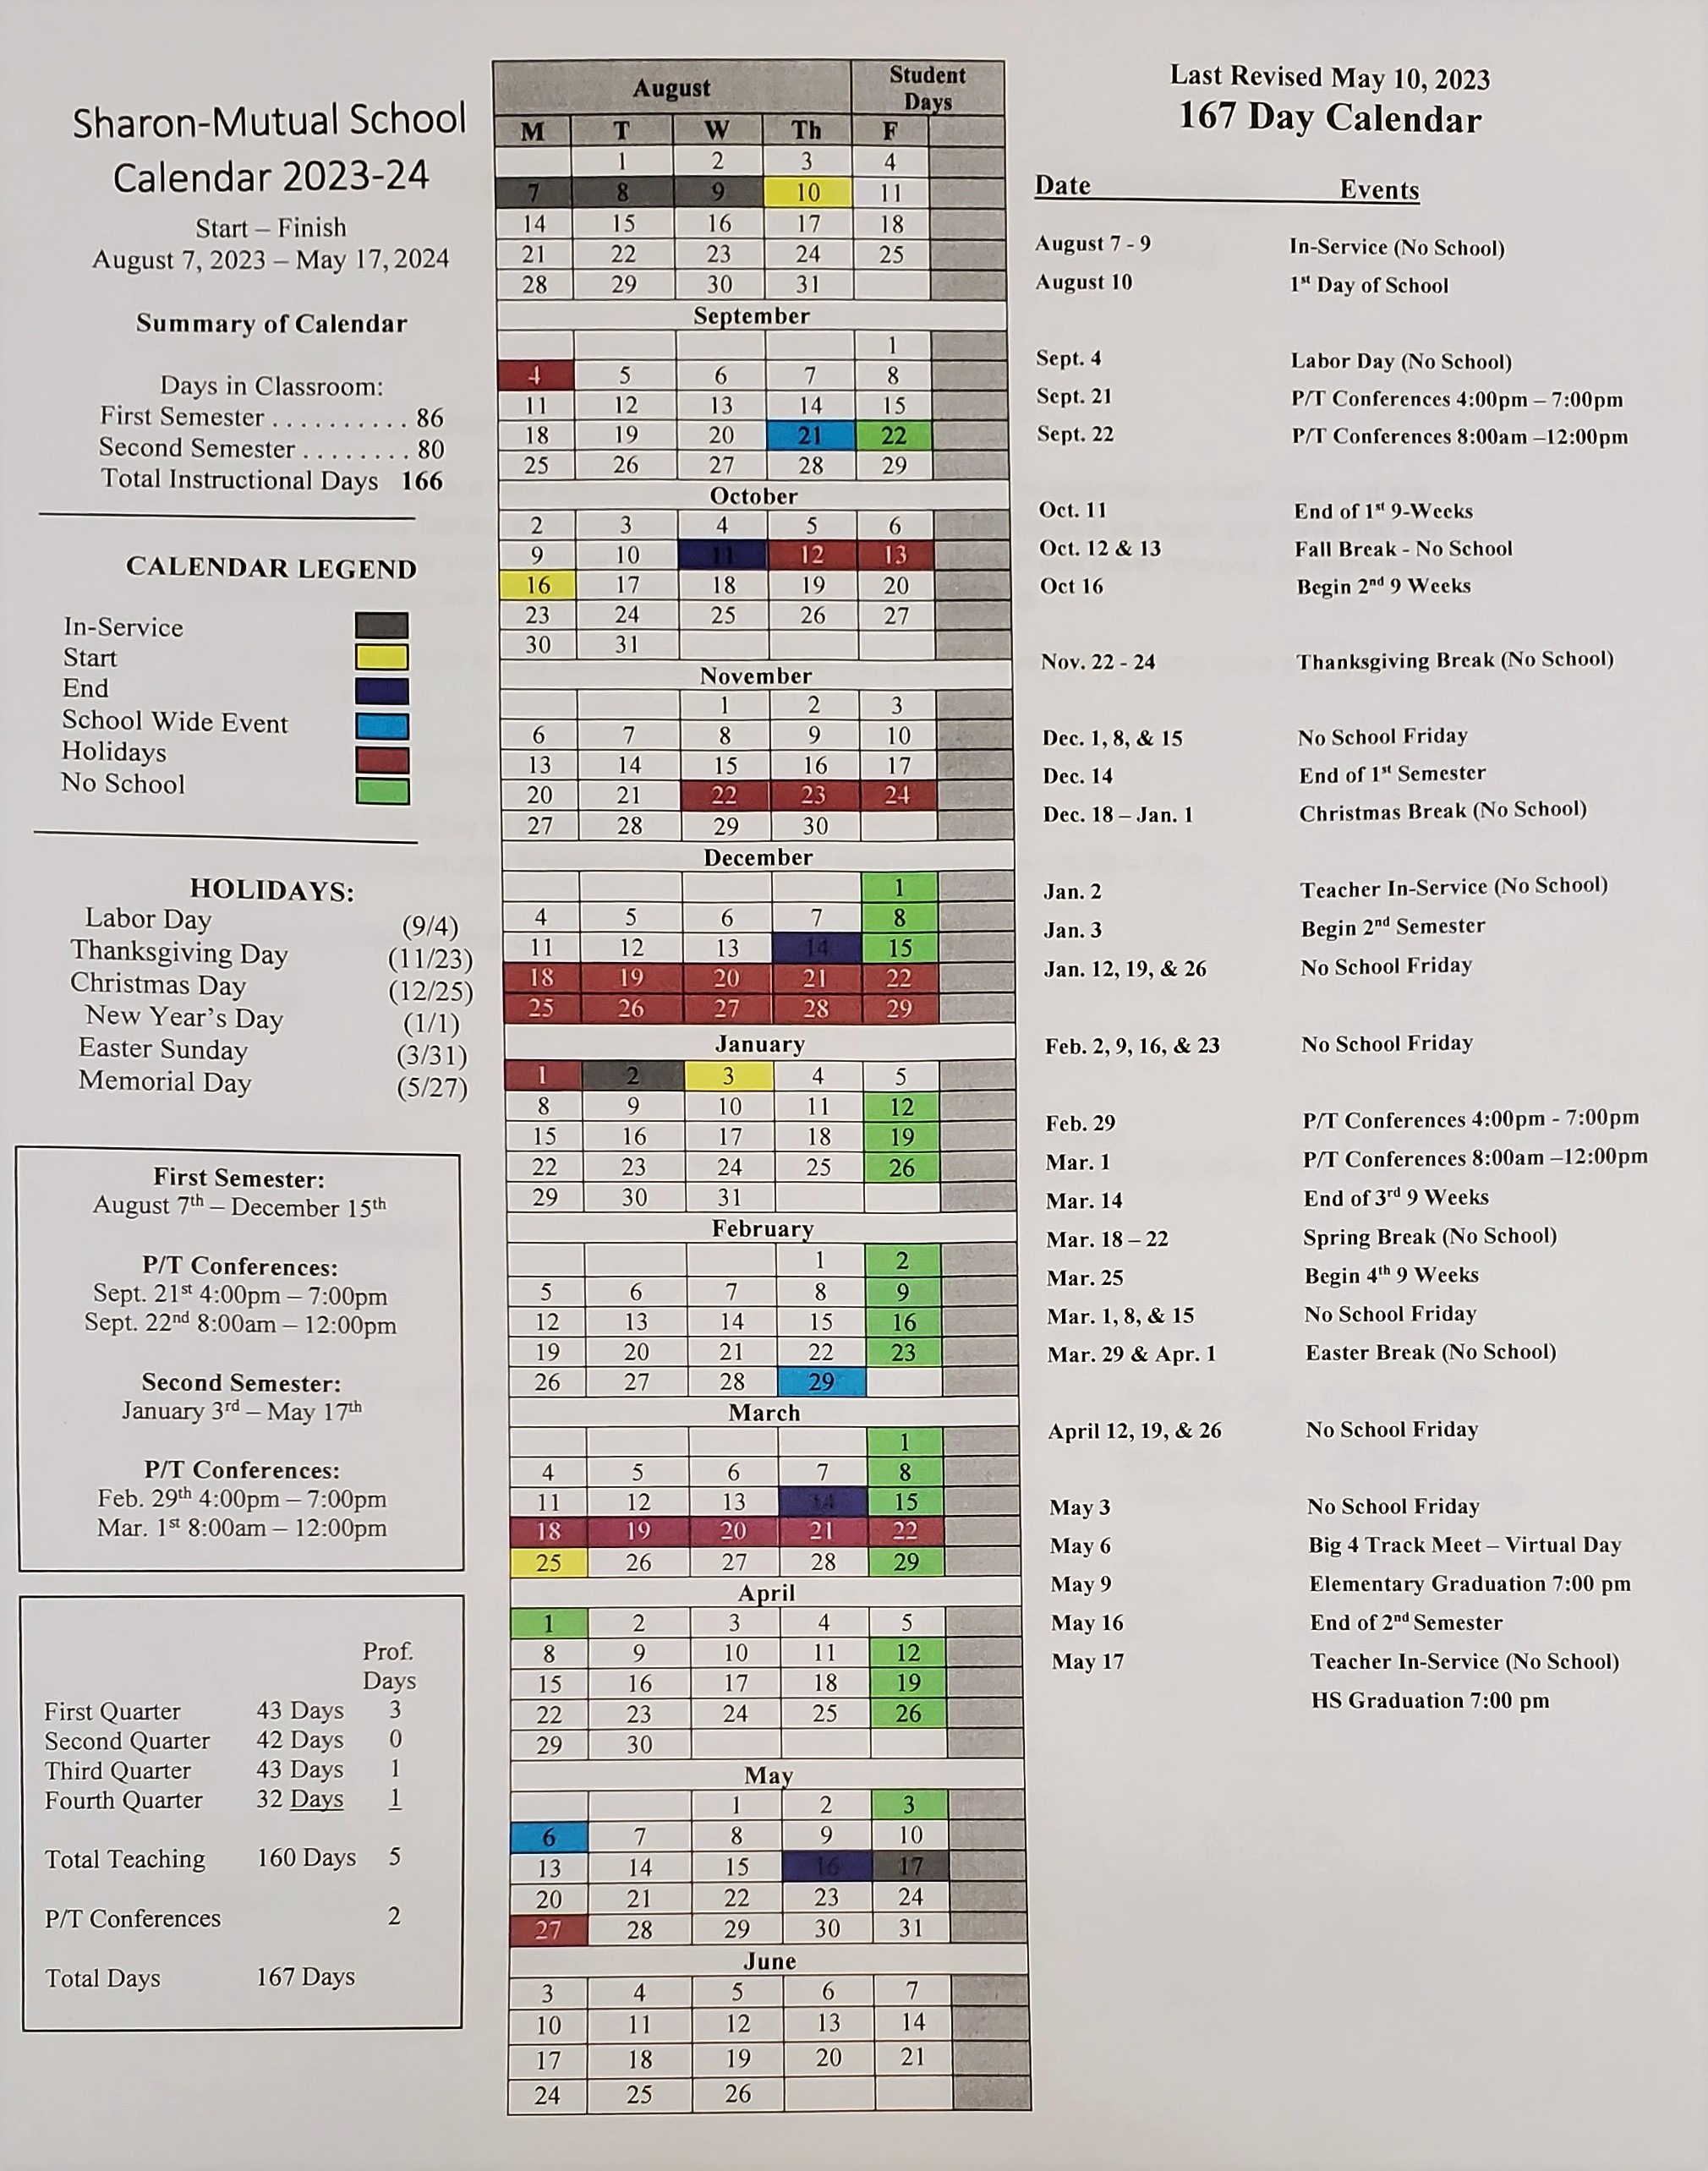 Sharon-Mutual School
Calendar 2023-24
Start – Finish
August 7, 2023 – May 17, 2024
Summary of Calendar
Days in Classroom:
First Semester . . . . . . . . . . 86
Second Semester . . . . . . . . 80
Total Instructional Days 166
CALENDAR LEGEND
In-Service
Start
End
School Wide Event
Holidays
No School
HOLIDAYS:
Labor Day (9/4)
Thanksgiving Day (11/23)
Christmas Day (12/25)
New Year's Day (1/1)
Easter Sunday (3/31)
Memorial Day (5/27)
First Semester:
August 7th – December 15th
P/T Conferences:
Sept. 21st 4:00pm – 7:00pm
Sept. 22nd 8:00am – 12:00pm
Second Semester:
January 3rd – May 17th
P/T Conferences:
Feb. 29th 4:00pm – 7:00pm
Mar. 1st 8:00am – 12:00pm
Prof.
Days
First Quarter 43 Days 3
Second Quarter 42 Days 0
Third Quarter 43 Days 1
Fourth Quarter 32 Days 1
Total Teaching 160 Days 5
P/T Conferences 2
Total Days 167 Days
August Student
Days
M T W Th F
1 2 3 4
7 8 9 10 11
14 15 16 17 18
21 22 23 24 25
28 29 30 31
September
1
4 5 6 7 8
11 12 13 14 15
18 19 20 21 22
25 26 27 28 29
October
2 3 4 5 6
9 10 11 12 13
16 17 18 19 20
23 24 25 26 27
30 31
November
1 2 3
6 7 8 9 10
13 14 15 16 17
20 21 22 23 24
27 28 29 30
December
1
4 5 6 7 8
11 12 13 14 15
18 19 20 21 22
25 26 27 28 29
January
1 2 3 4 5
8 9 10 11 12
15 16 17 18 19
22 23 24 25 26
29 30 31
February
1 2
5 6 7 8 9
12 13 14 15 16
19 20 21 22 23
26 27 28 29
March
1
4 5 6 7 8
11 12 13 14 15
18 19 20 21 22
25 26 27 28 29
April
1 2 3 4 5
8 9 10 11 12
15 16 17 18 19
22 23 24 25 26
29 30
May
1 2 3
6 7 8 9 10
13 14 15 16 17
20 21 22 23 24
27 28 29 30 31
June
3 4 5 6 7
10 11 12 13 14
17 18 19 20 21
24 25 26
Last Revised May 10, 2023
167 Day Calendar
Date Events
August 7 - 9 In-Service (No School)
August 10 1st Day of School
Sept. 4 Labor Day (No School)
Sept. 21 P/T Conferences 4:00pm – 7:00pm
Sept. 22 P/T Conferences 8:00am –12:00pm
Oct. 11 End of 1st 9-Weeks
Oct. 12 & 13 Fall Break - No School
Oct 16 Begin 2nd 9 Weeks
Nov. 22 - 24 Thanksgiving Break (No School)
Dec. 1, 8, & 15 No School Friday
Dec. 14 End of 1st Semester
Dec. 18 – Jan. 1 Christmas Break (No School)
Jan. 2 Teacher In-Service (No School)
Jan. 3 Begin 2nd Semester
Jan. 12, 19, & 26 No School Friday
Feb. 2, 9, 16, & 23 No School Friday
Feb. 29 P/T Conferences 4:00pm - 7:00pm
Mar. 1 P/T Conferences 8:00am –12:00pm
Mar. 14 End of 3rd 9 Weeks
Mar. 18 – 22 Spring Break (No School)
Mar. 25 Begin 4th 9 Weeks
Mar. 1, 8, & 15 No School Friday
Mar. 29 & Apr. 1 Easter Break (No School)
April 12, 19, & 26 No School Friday
May 3 No School Friday
May 6 Big 4 Track Meet – Virtual Day
May 9 Elementary Graduation 7:00 pm
May 16 End of 2nd Semester
May 17 Teacher In-Service (No School)
HS Graduation 7:00 pm